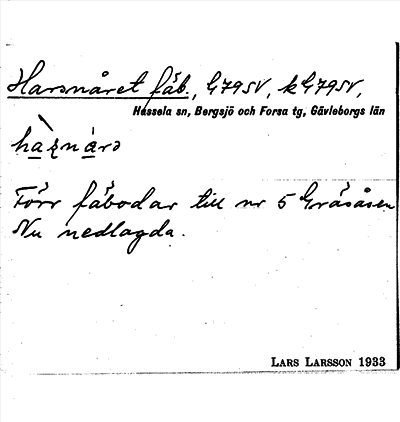 Harsnåret fäb., G79SV, k G79SV,
Hassela sn, Bergsjö och Forsa tg, Gävleborgs län
Förr fäbodar till nr 5 Gräsåsen
Nu nedlagda.
LARS LARSSON 1933